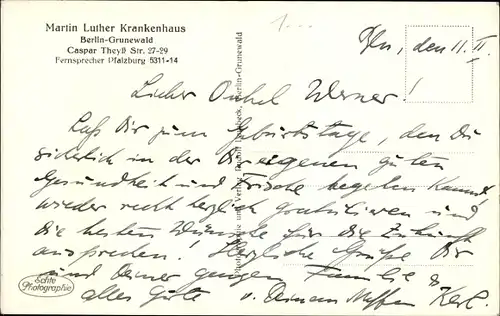 Martin Luther Krankenhaus
Berlin-Grunewald
Caspar Theyß Str. 27-29
Fernsprecher Pfalzburg 5311-14
Bln, den 11. II.
Lieber Onkel Werner!
Laß Dir zum Geburtstage, den Du
sicherlich in der Dir eigenen guten
Gesundheit und Frische begehen kannst,
wieder recht herzlich gratulieren und
die besten Wünsche für die Zukunft
aussprechen. Herzliche Grüße Dir
und Deiner ganzen Familie &
alles Gute v. Deinem Neffen Karl.
Echte
Photographie
Berlin-Grunewald